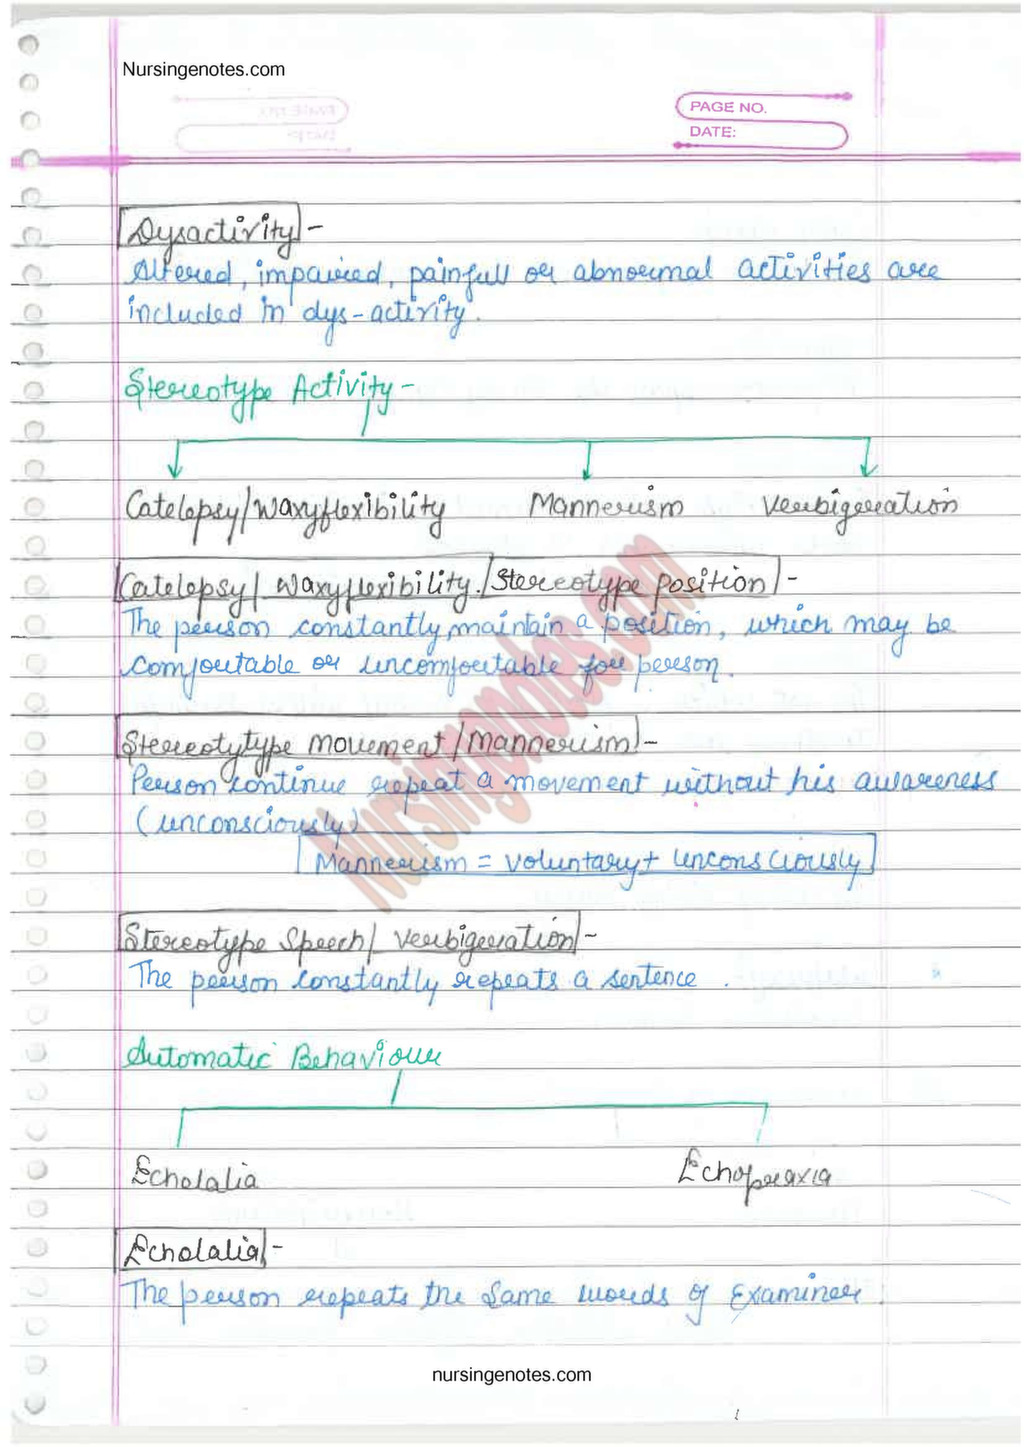 Nursingenotes.com
PAGE NO.
DATE:
Dysactivity -
Altered, impaired, painfull or abnormal activities are
included in dys-activity.
Stereotype Activity -
Catelepsy/Waxyflexibility Mannerism Verbigeration
Catelepsy/ Waxyflexibility./Stereotype position -
The person constantly, maintain a position, which may be
comfortable or uncomfortable for person.
Stereotytype movement/Mannerism -
Person continue repeat a movement without his awareness
(unconsciously)
Mannerism = voluntary + unconsciously
Stereotype Speech/ Verbigeration -
The person constantly repeats a sentence.
Automatic Behaviour
Echolalia Echopraxia
Echolalia -
The person repeats the same words of Examiner.
Nursingnotes.com
nursingenotes.com